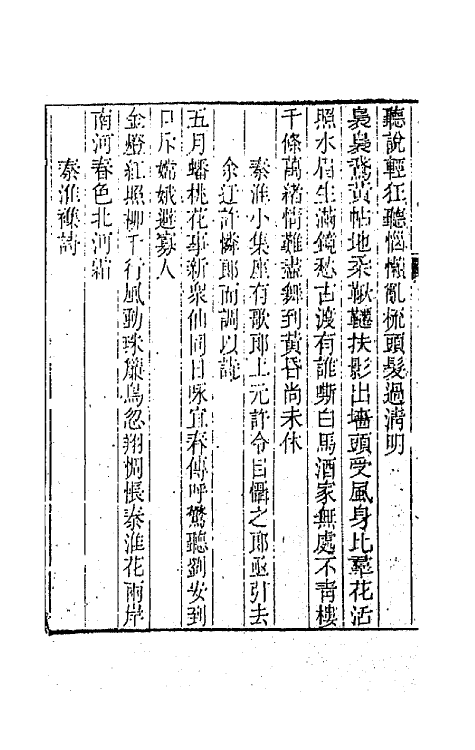 聽說輕狂聽惱懶亂梳頭髮過淸明
裊裊鵞黃帖地柔鞦韆扶影出墻頭受風身比羣花活
照水眉生滿鏡愁古渡有誰嘶白馬酒家無處不靑樓
千條萬緒情難盡舞到黃昏尙未休
秦淮小集座有歌郎上元許令目懾之郎亟引去
余迂許憐郎而調以詩
五月蟠桃花事新衆仙同日咏宜春傳呼驚聽劉安到
只斥嫦娥避寡人
金燈紅照柳千行風動珠簾鳥忽翔惆悵秦淮花兩岸
南河春色北河霜
秦淮襍詩